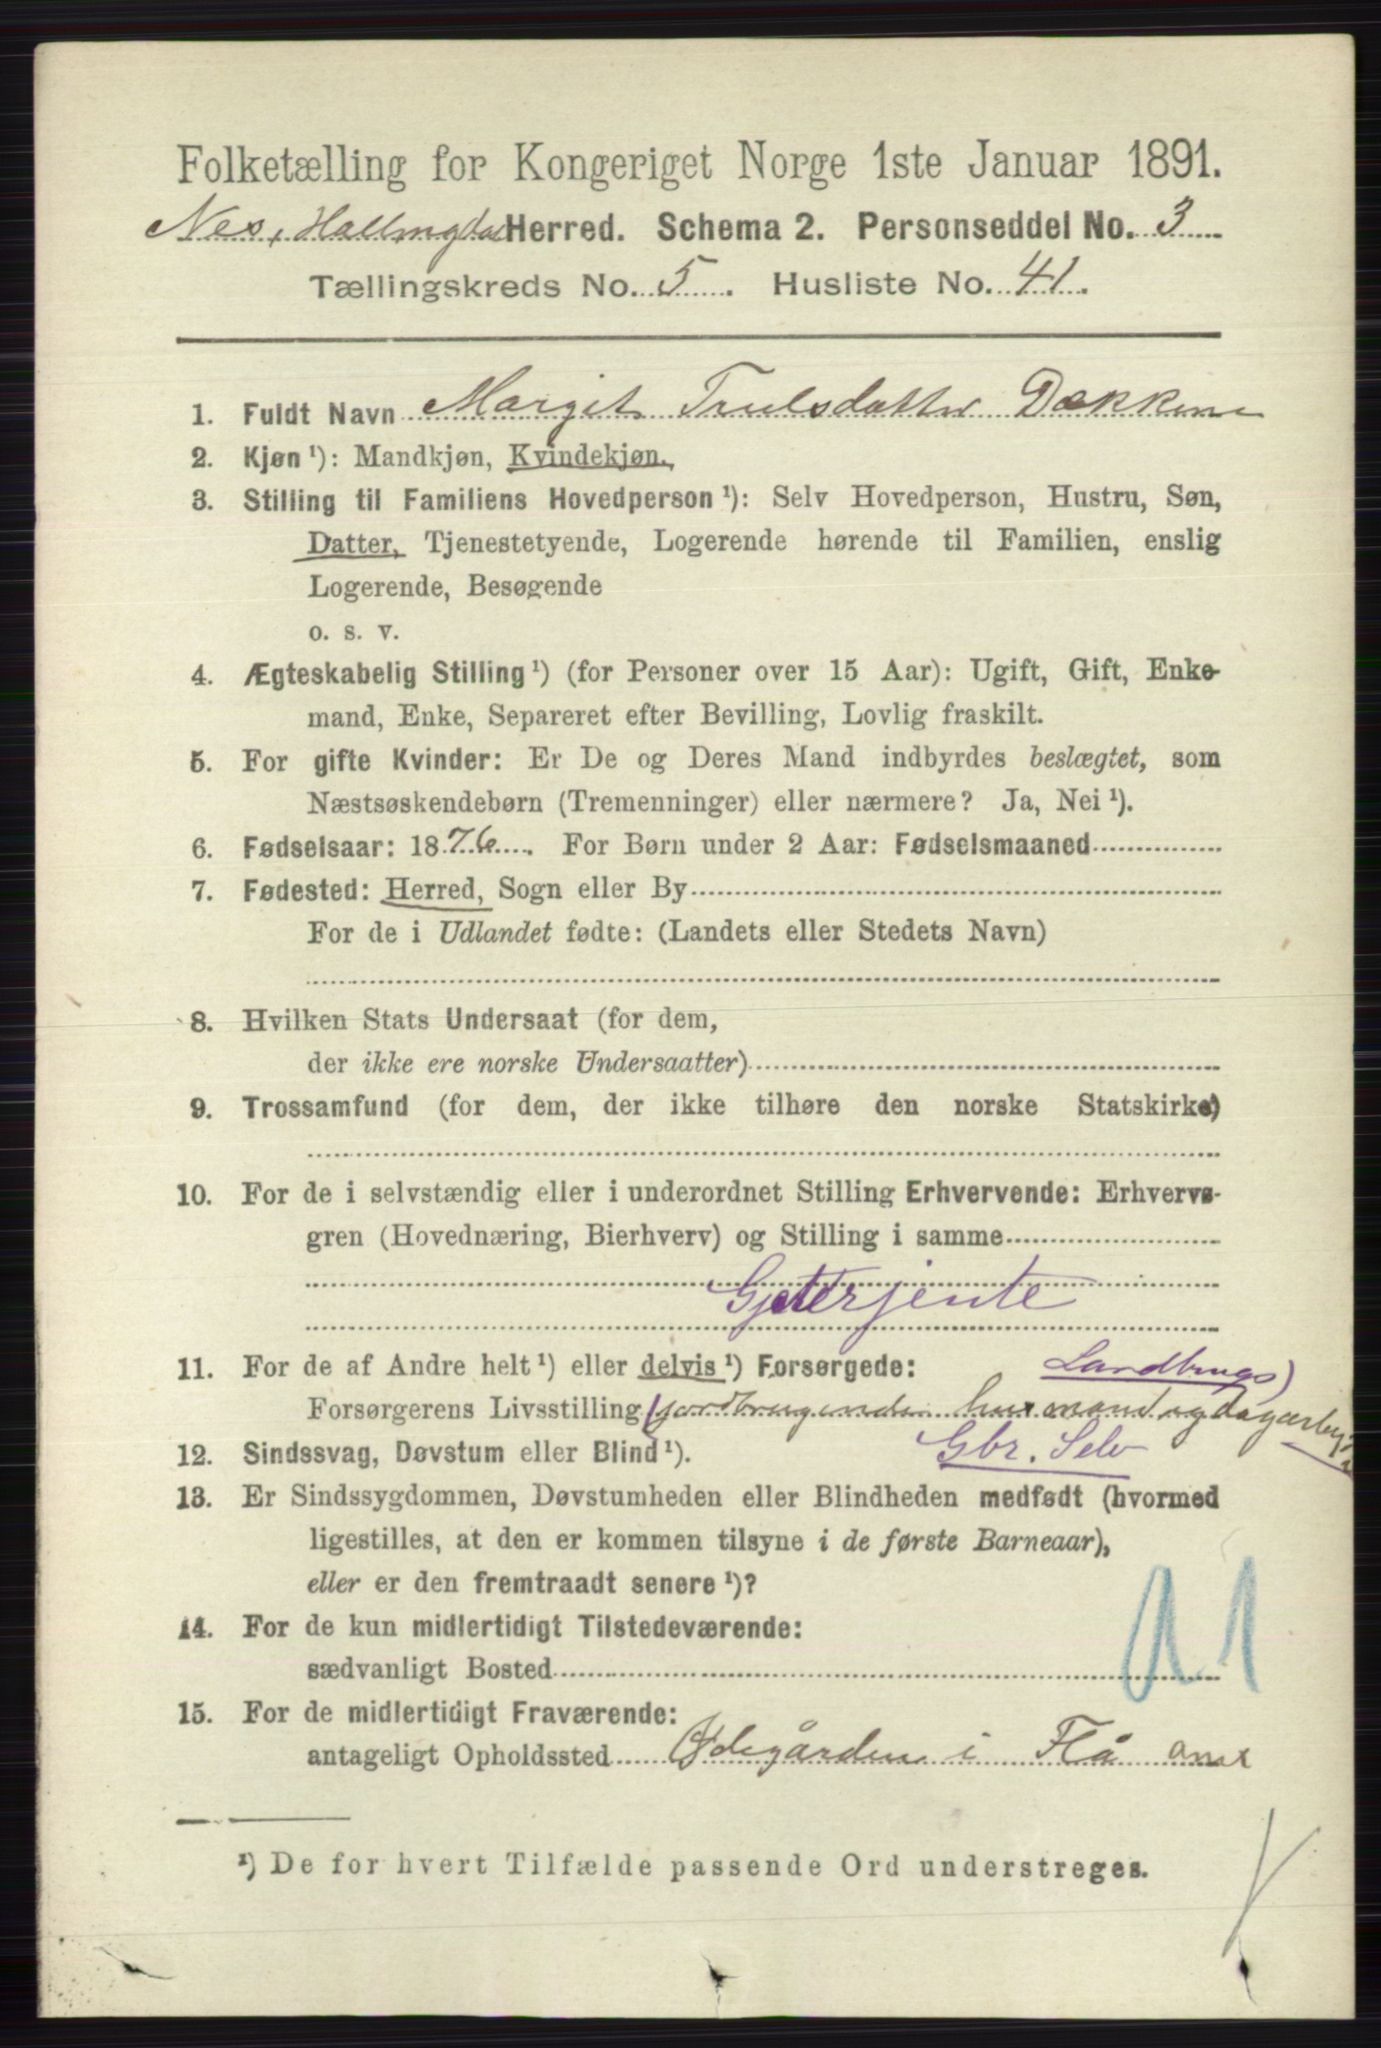 Folketælling for Kongeriget Norge 1ste Januar 1891.
Nes, Hallingdal Herred. Schema 2. Personseddel No. 3
Tællingskreds No. 5. Husliste No. 41.
1. Fuldt Navn Margit Trulsdatter Dækkene
2. Kjøn ¹): Mandkjøn, Kvindekjøn.
3. Stilling til Familiens Hovedperson ¹): Selv Hovedperson, Hustru, Søn,
Datter, Tjenestetyende, Logerende hørende til Familien, enslig
Logerende, Besøgende
o. s. v.
4. Ægteskabelig Stilling ¹) (for Personer over 15 Aar): Ugift, Gift, Enke-
mand, Enke, Separeret efter Bevilling, Lovlig fraskilt.
5. For gifte Kvinder: Er De og Deres Mand indbyrdes beslægtet, som
Næstsøskendebørn (Tremenninger) eller nærmere? Ja, Nei ¹).
6. Fødselsaar: 1876. For Børn under 2 Aar: Fødselsmaaned
7. Fødested: Herred, Sogn eller By
For de i Udlandet fødte: (Landets eller Stedets Navn)
8. Hvilken Stats Undersaat (for dem,
der ikke ere norske Undersaatter)
9. Trossamfund (for dem, der ikke tilhøre den norske Statskirke)
10. For de i selvstændig eller i underordnet Stilling Erhvervende: Erhvervs-
gren (Hovednæring, Bierhverv) og Stilling i samme
Gjeterjente
11. For de af Andre helt ¹) eller delvis ¹) Forsørgede: Landbrugs)
Forsørgerens Livsstilling (jordbrugende husmand og dagarbej
12. Sindssvag, Døvstum eller Blind ¹). Gbr. Selv
13. Er Sindssygdommen, Døvstumheden eller Blindheden medfødt (hvormed
ligestilles, at den er kommen tilsyne i de første Barneaar),
eller er den fremtraadt senere ¹)?
14. For de kun midlertidigt Tilstedeværende:
sædvanligt Bosted
15. For de midlertidigt Fraværende:
antageligt Opholdssted Ødegården i Flå
¹) De for hvert Tilfælde passende Ord understreges.